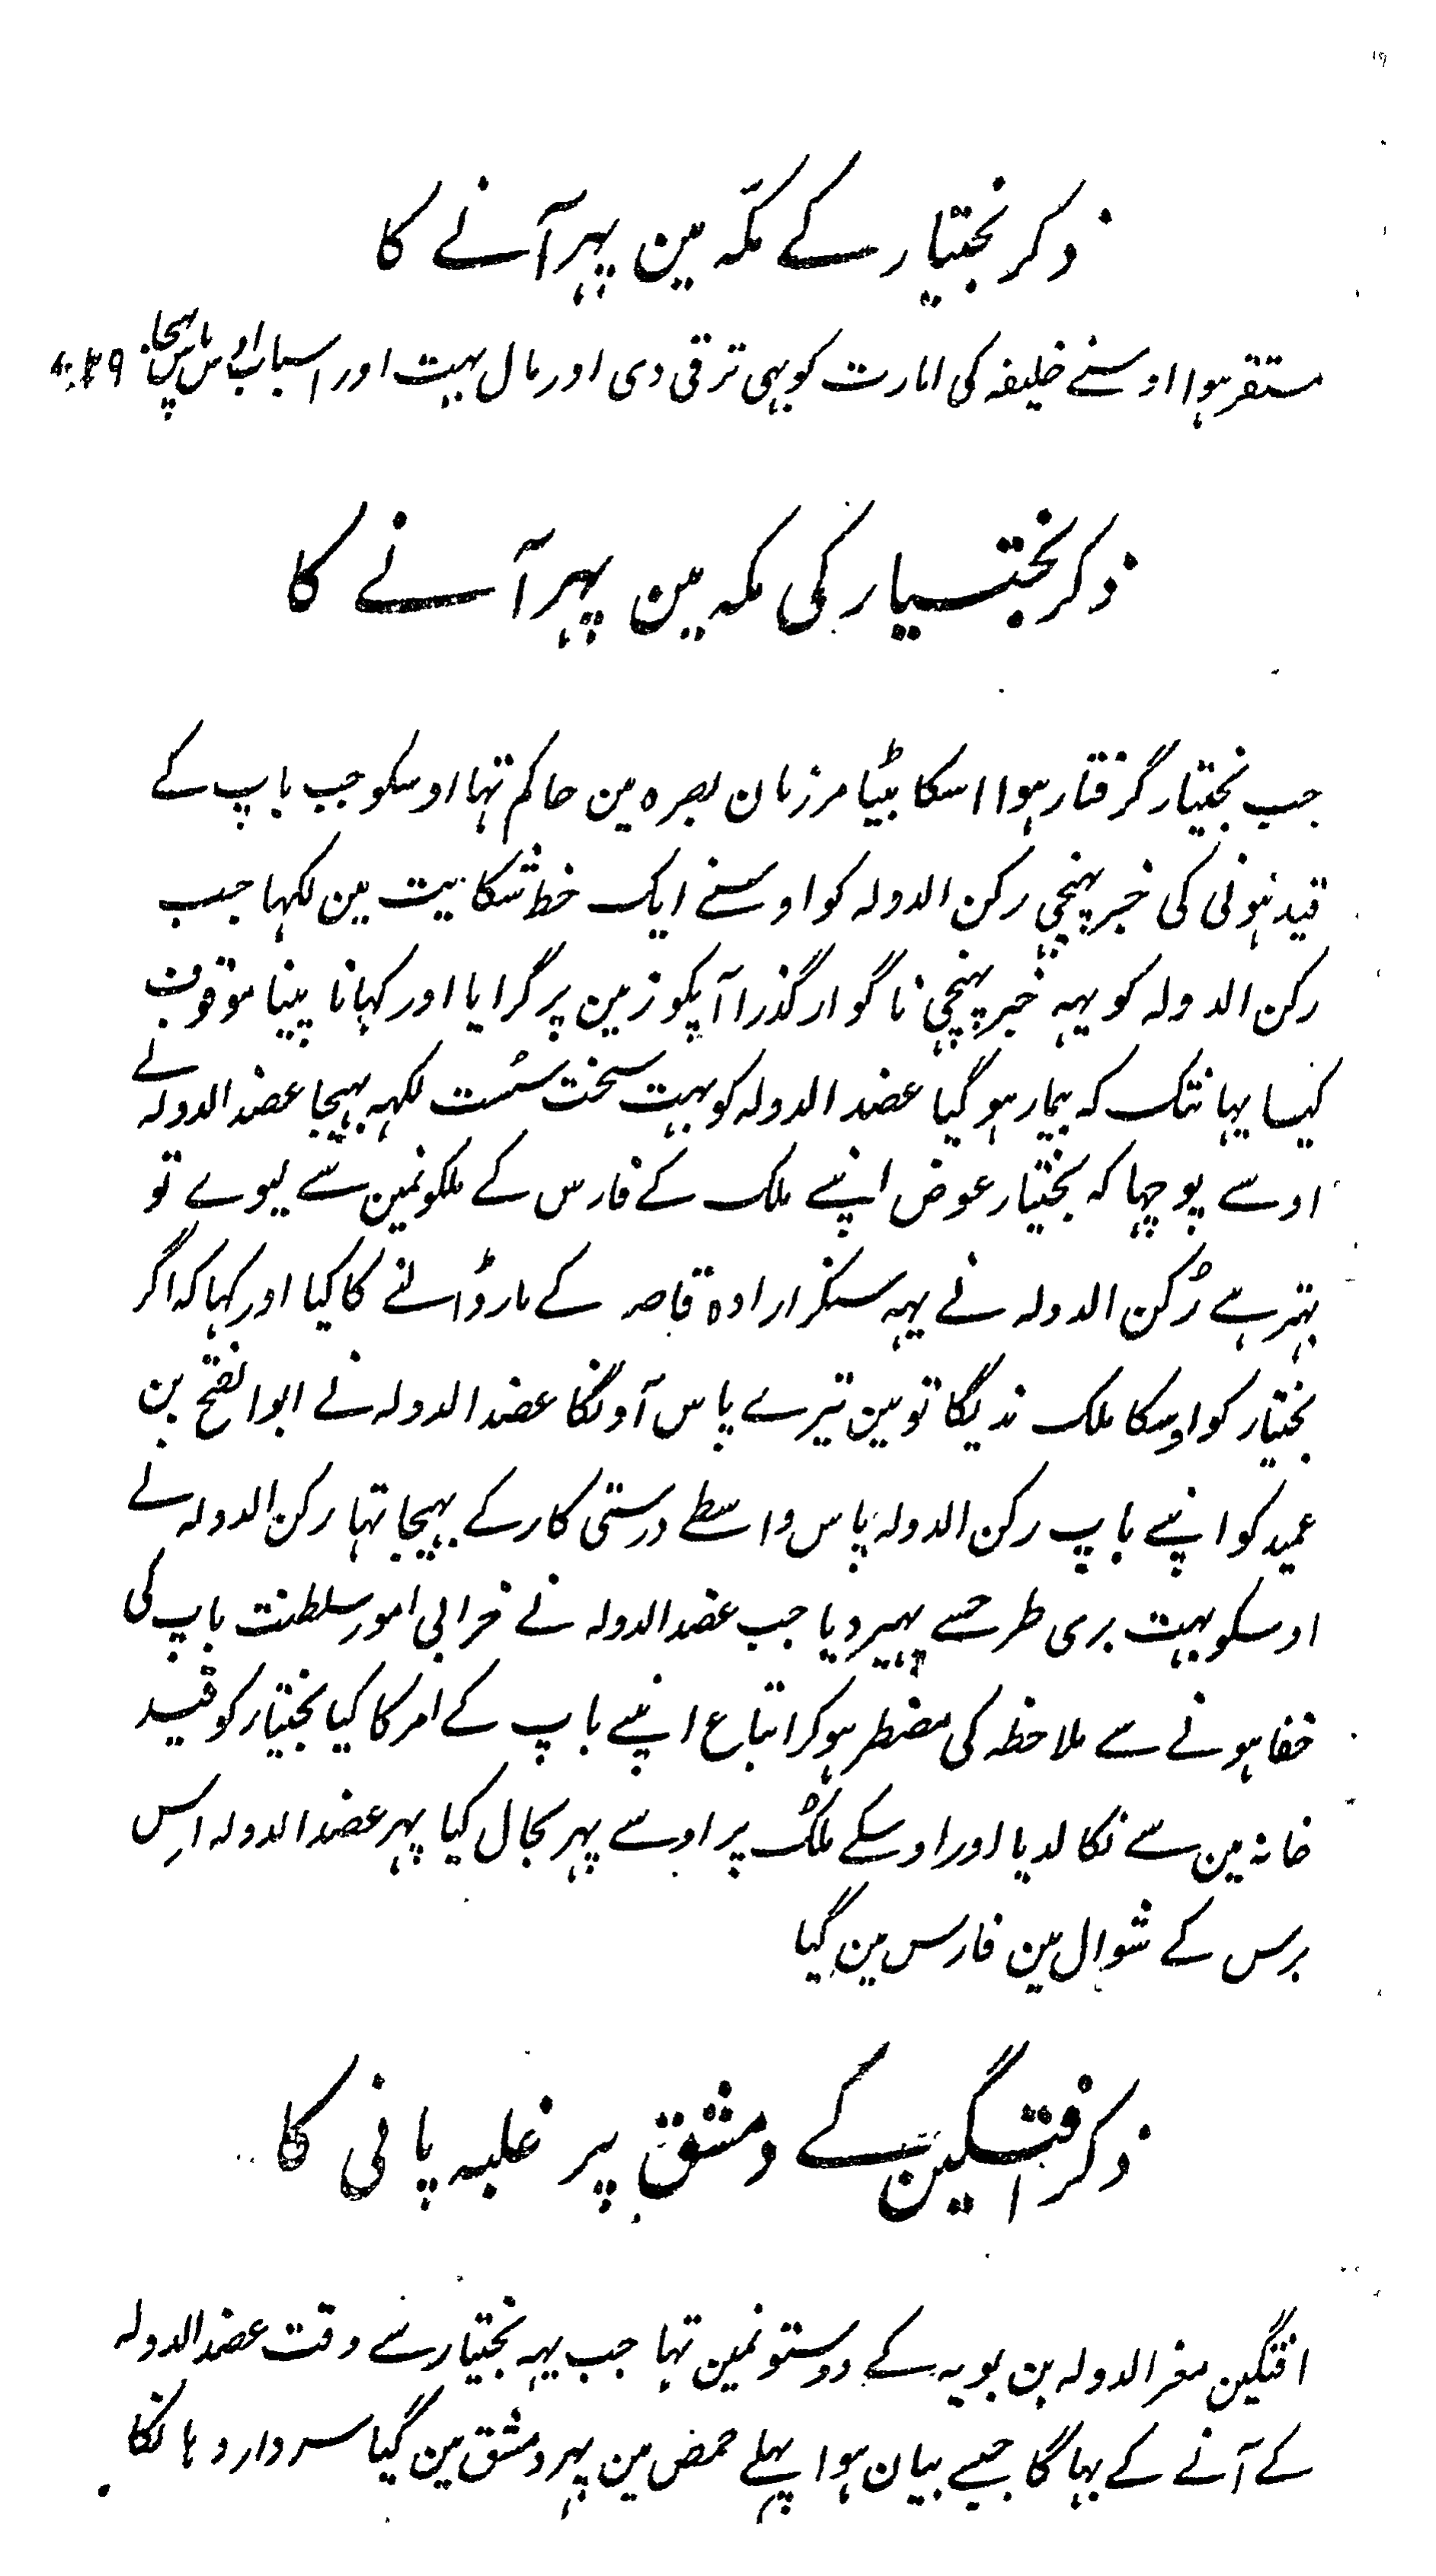 ذکر بختیار کے مکّہ مین پہر آنے کا
مستقر ہوا اوسنے خلیفہ کی امارت کو بہی ترقی دی اور مال بہت اور اسباب اوس پاس بہیجا
ذکر بختیار کی مکہ مین پہر آنے کا
جب بختیار گرفتار ہوا اسکا بیٹا مرزبان بصرہ مین حاکم تہا اوسکو جب باپ کے
قید ہونی کی خبر پہنچی رکن الدولہ کو اوسنے ایک خط شکایت مین لکہا جب
رکن الدولہ کو یہہ خبر پہنچی ناگوار گذرا آپکو زمین پر گرایا اور کہانا پینا موقوف
کیا یہانتک کہ بیمار ہو گیا عضد الدولہ کو بہت سخت سُست لکہہ بہیجا عضد الدولہ نے
اوسے پوچہا کہ بختیار عوض اپنے ملک کے فارس کے ملکونمین سے لیوے تو
بہتر ہے رُکن الدولہ نے یہہ سنکر ارادہ قاصد کے مار ڈالنے کا کیا اور کہا کہ اگر
بختیار کو اوسکا ملک ندیگا تو مین تیرے پاس آونگا عضد الدولہ نے ابو الفتح بن
عمید کو اپنے باپ رکن الدولہ پاس واسطے درستی کار کے بہیجا تہا رکن الدولہ نے
اوسکو بہت بری طرحسے پہیر دیا جب عضد الدولہ نے خرابی امور سلطنت باپ کی
خفا ہونے سے ملاحظہ کی مضطر ہوکر اتباع اپنے باپ کے امر کا کیا بختیار کو قید
خانہ مین سے نکالدیا اور اوسکے ملک پر اوسے پہر بحال کیا پہر عضد الدولہ اِس
برس کے شوال مین فارس مین گیا
ذکر افتگین کے دمشق پر غلبہ پانی کا
افتگین معز الدولہ بن بویہ کے دوستونمین تہا جب یہہ بختیار سے وقت عضد الدولہ
کے آنے کے بہاگا جیسے بیان ہوا پہلے حمض مین پہر دمشق مین گیا سردار وہانکا